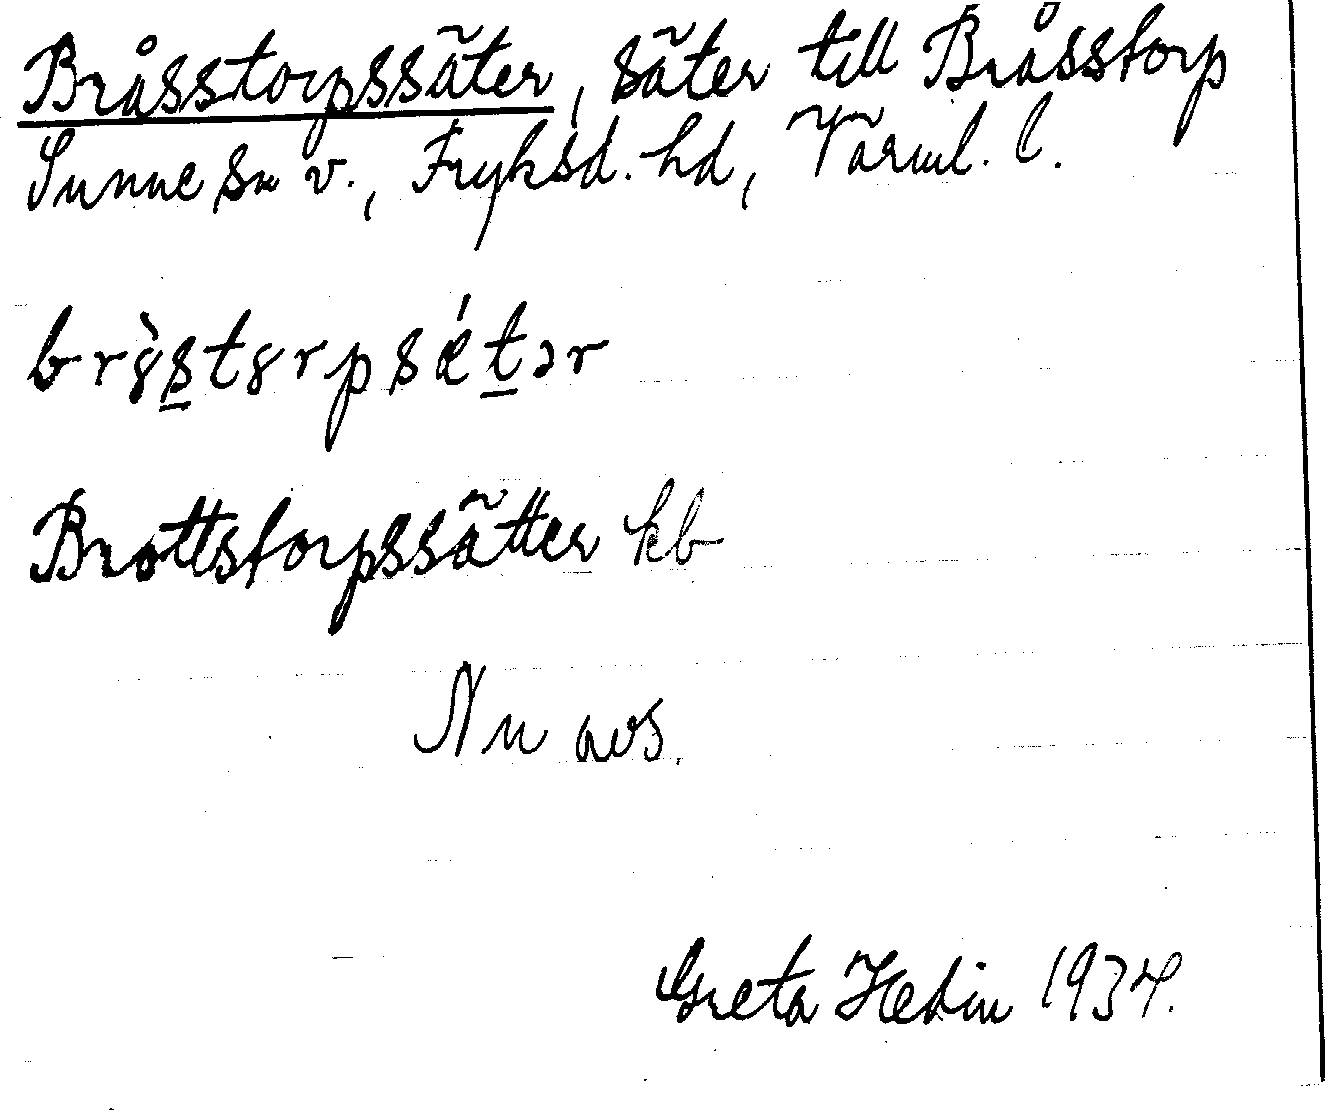 Bråsstorpssäter, säter till Bråsstorp
Sunne sn v., Fryksd. hd, Värml. l.
brȣ̀s̱tȣrpsǽṯər
Brottstorpssätter kb
Nu avs.
Greta Hedin 1934.